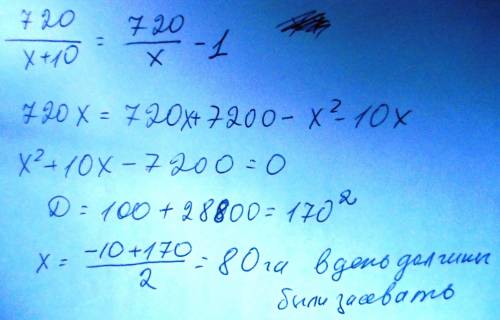 720/(x+10) = 720/x - 1
720x = 720x+7200 - x² - 10x
x² + 10x - 7200 = 0
D = 100 + 28800 = 170²
x = (-10+170)/2 = 80 га в день должны
были засевать